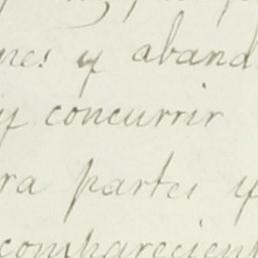 nes y aband
y concurrir
ra partes y
comparecient